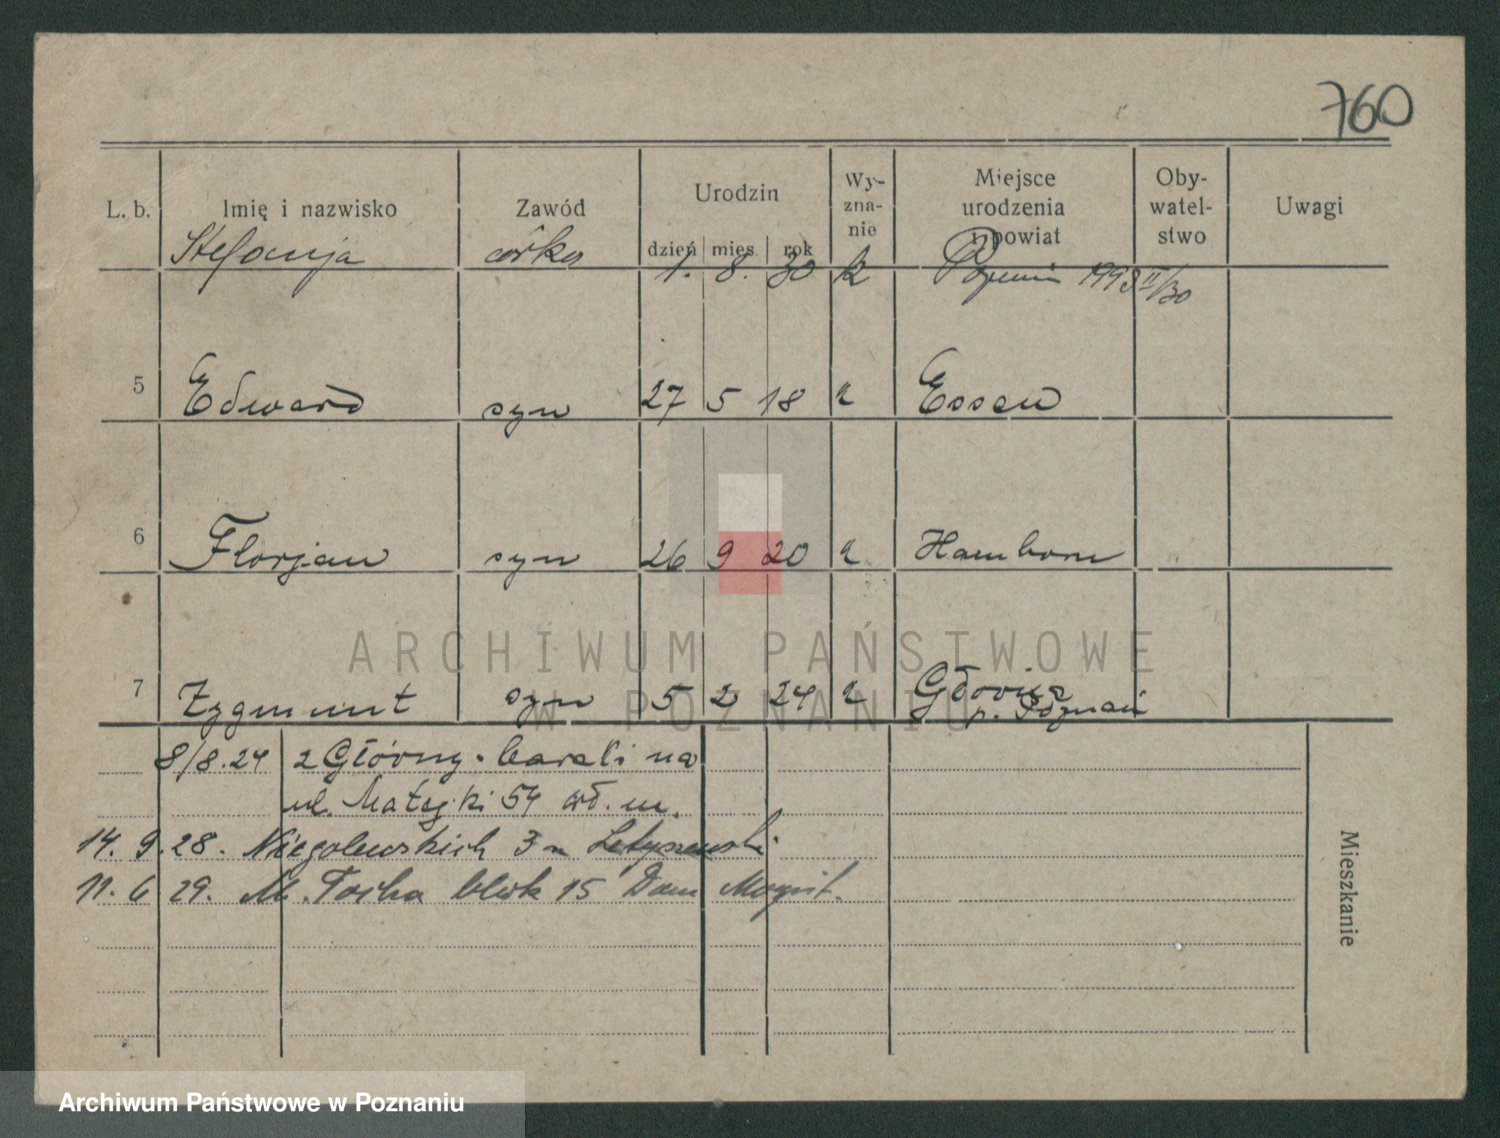 760
L. b. Imię i nazwisko Zawód Urodzin dzień mies. rok Wyznanie Miejsce urodzenia i powiat Obywatelstwo Uwagi
Stefanja córka 1. 8. 30 k Poznań 1993 II/30
5 Edward syn 27 5 18 " Essen
6 Florjan syn 26 9 20 " Hamborn
7 Zygmunt syn 5 2 24 " Główna
p. Poznań
8/8.24 z Główny - baraki na
ul. Matejki 54 wł. m.
14. 9. 28. Niegolewskich 3 m
11. 6 29. M. Focha blok 15 Dom Magist.
Mieszkanie
ARCHIWUM PAŃSTWOWE
W POZNANIU
Archiwum Państwowe w Poznaniu